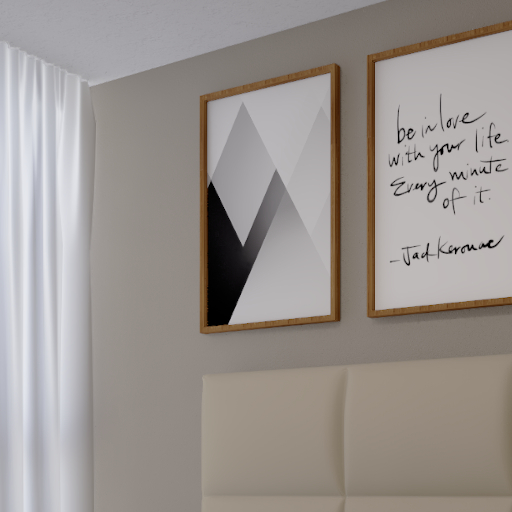 be in love
with your life
Every minute
of it.
-Jack Kerouac